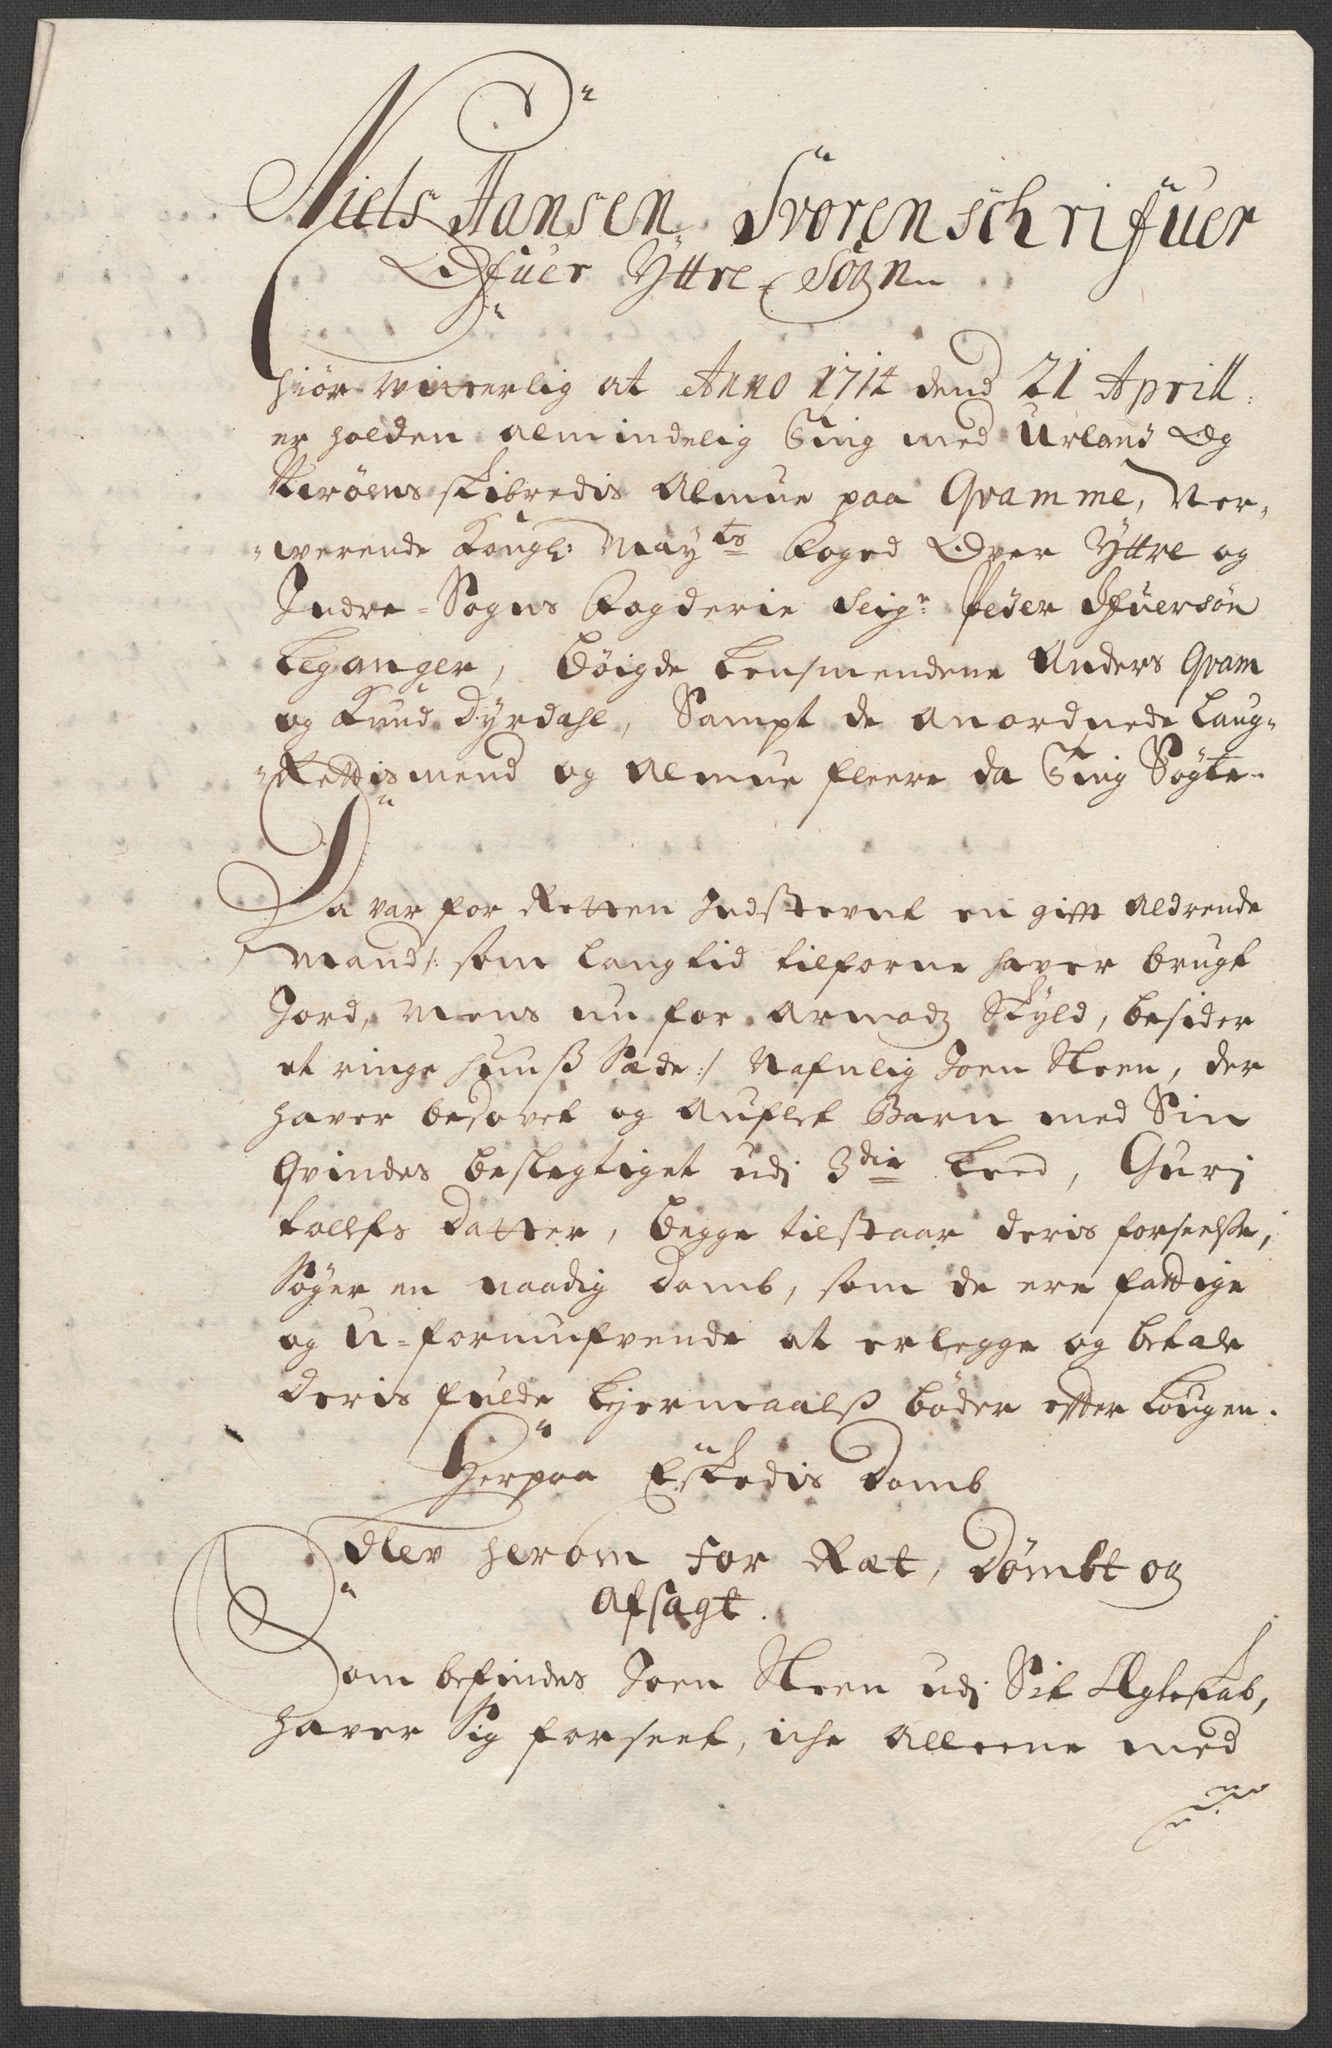 Niels Hansen Svorenschrifuer
Ofuer Yttre Sogn
Giør Witterlig at Anno 1714 dend 21 Aprill:
er holden almindelig Ting med Urland Og
Skibredis Almue paa Qvamme, Ner-
werende Kongl: Mayts Foged Over Yttre og
Indre-Sogns Fogderie Seigr Peder Ifuersøn
Leganger, Bøigde Lensmendene Anders Qvam
og Knud Dyrdahl, Sampt de anordnede Laug-
Rettismend og Almue fleere da Ting Søgte.
Da var for Retten Indstevnt en gift aldrende
Mand /: som langtid tilforne haver brugt
Jord, Mens nu for armodz Skyld, besider
et ringe Huuß Sæde :/ Nafnlig Joen Steen, der
haver besovet og auflet Barn med Sin
Qvindes beslegtiget udj 3die Leed, Gurj
Rollfs Datter, Begge tilstaar deris forseelse,
Søger en naadig Domb, som de ere fattige
og u-formufvende at erlegge og betale
deris fulde Lejermaalß bøder efter Lougen.
Herpaa Eskedis Domb
Blev herom for Ræt, Dømbt og
Afsagt.
Som befindes Joen Steen udj Sit Ægteskab,
haver Sig forseet, iche alleene med